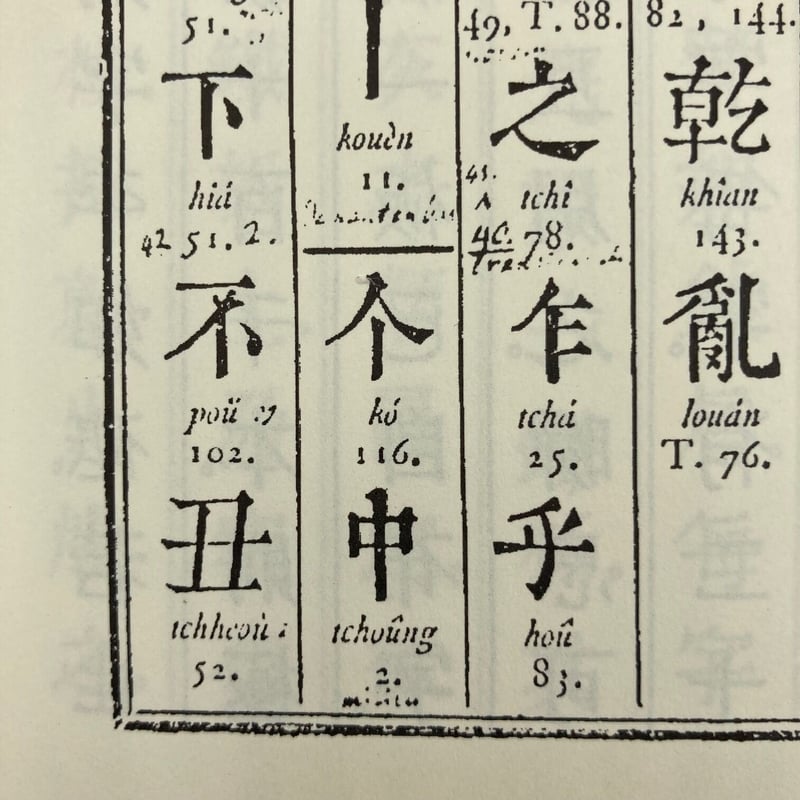 51.
下
hiá
42 51. 2.
不
poŭ
102.
丑
tchheoù
52.
丨
kouèn
11.
个
kó
116.
中
tchoûng
2.
49, T. 88.
之
tchî
78.
乍
tchá
25.
乎
hoû
83.
82, 144.
乾
khîan
143.
亂
louán
T. 76.